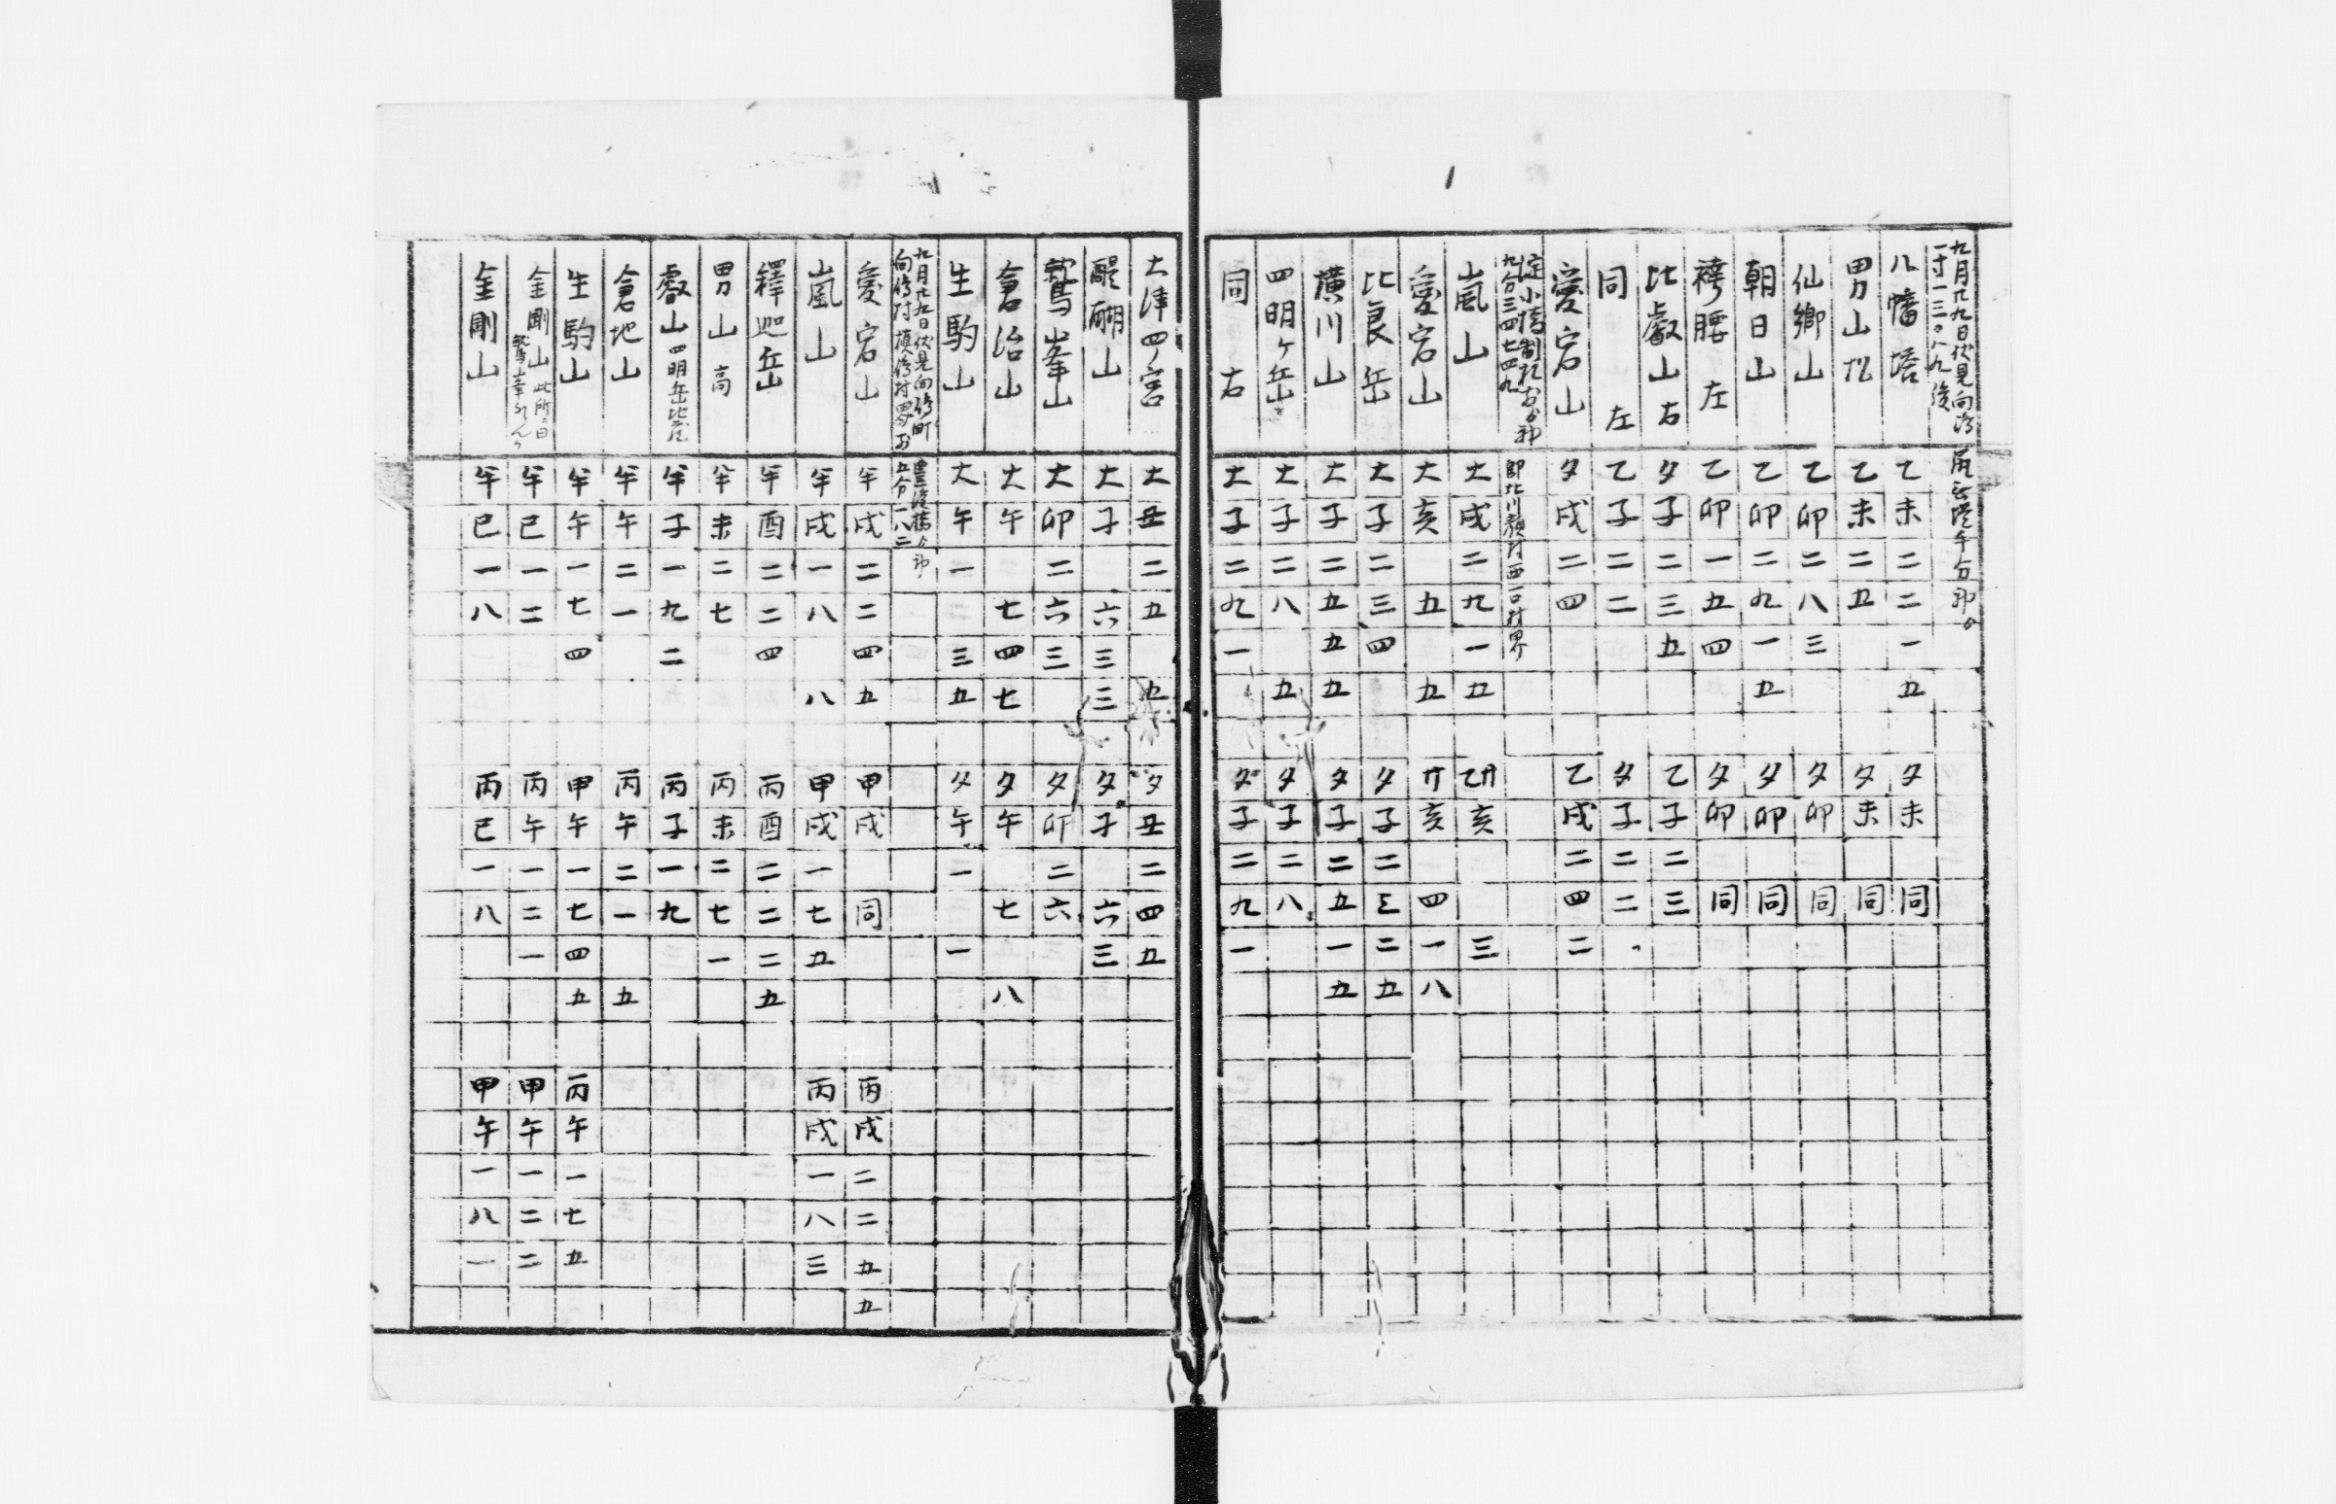 九月廿九日伏見向
一寸一三〇八九後
八幡塔 乙未二二一五 夕未同
男山 乙未二五 夕未同
仙郷山 乙卯二八三 夕卯同
朝日山 乙卯二九一五 夕卯同
袴腰左 乙卯一五四 夕卯同
比叡山右 夕子二三五 乙子二三
同左 乙子二二 夕子二二
愛宕山 夕戌二四 乙戌二四二
淀小橋制札
九分三四七四九
嵐山 大戌二九一五 亥三
愛宕山 大亥五五 亥四一八
比良岳 大子二三四 夕子二三二五
横川山 大子二五五五 夕子二五一五
四明ヶ岳 大子二八五 夕子二八
同右 大子二九一 夕子二九一
大津四ノ宮 大丑二五九 夕丑二四五
醍醐山 大子六三三 夕子六三
鷲峯山 大卯二六三 夕卯二六
倉治山 大午七四七 夕午七八
生駒山 大午一三五 夕午一一
九月廿九日伏見向
愛宕山 牟戌二二四五 甲戌同 丙戌二二五五
嵐山 牟戌一八八 甲戌一七五 丙戌一八三
釋迦岳 牟酉二二四 丙酉二二二五
男山高 牟未二七 丙未二七一
叡山四明岳 牟子一九二 丙子一九
倉地山 牟午二一 丙午二一五
生駒山 牟午一七四 甲午一七四五 丙午一七五
金剛山 牟巳一二 丙午一二一 甲午一二二
金剛山 牟巳一八 丙巳一八 甲午一八一